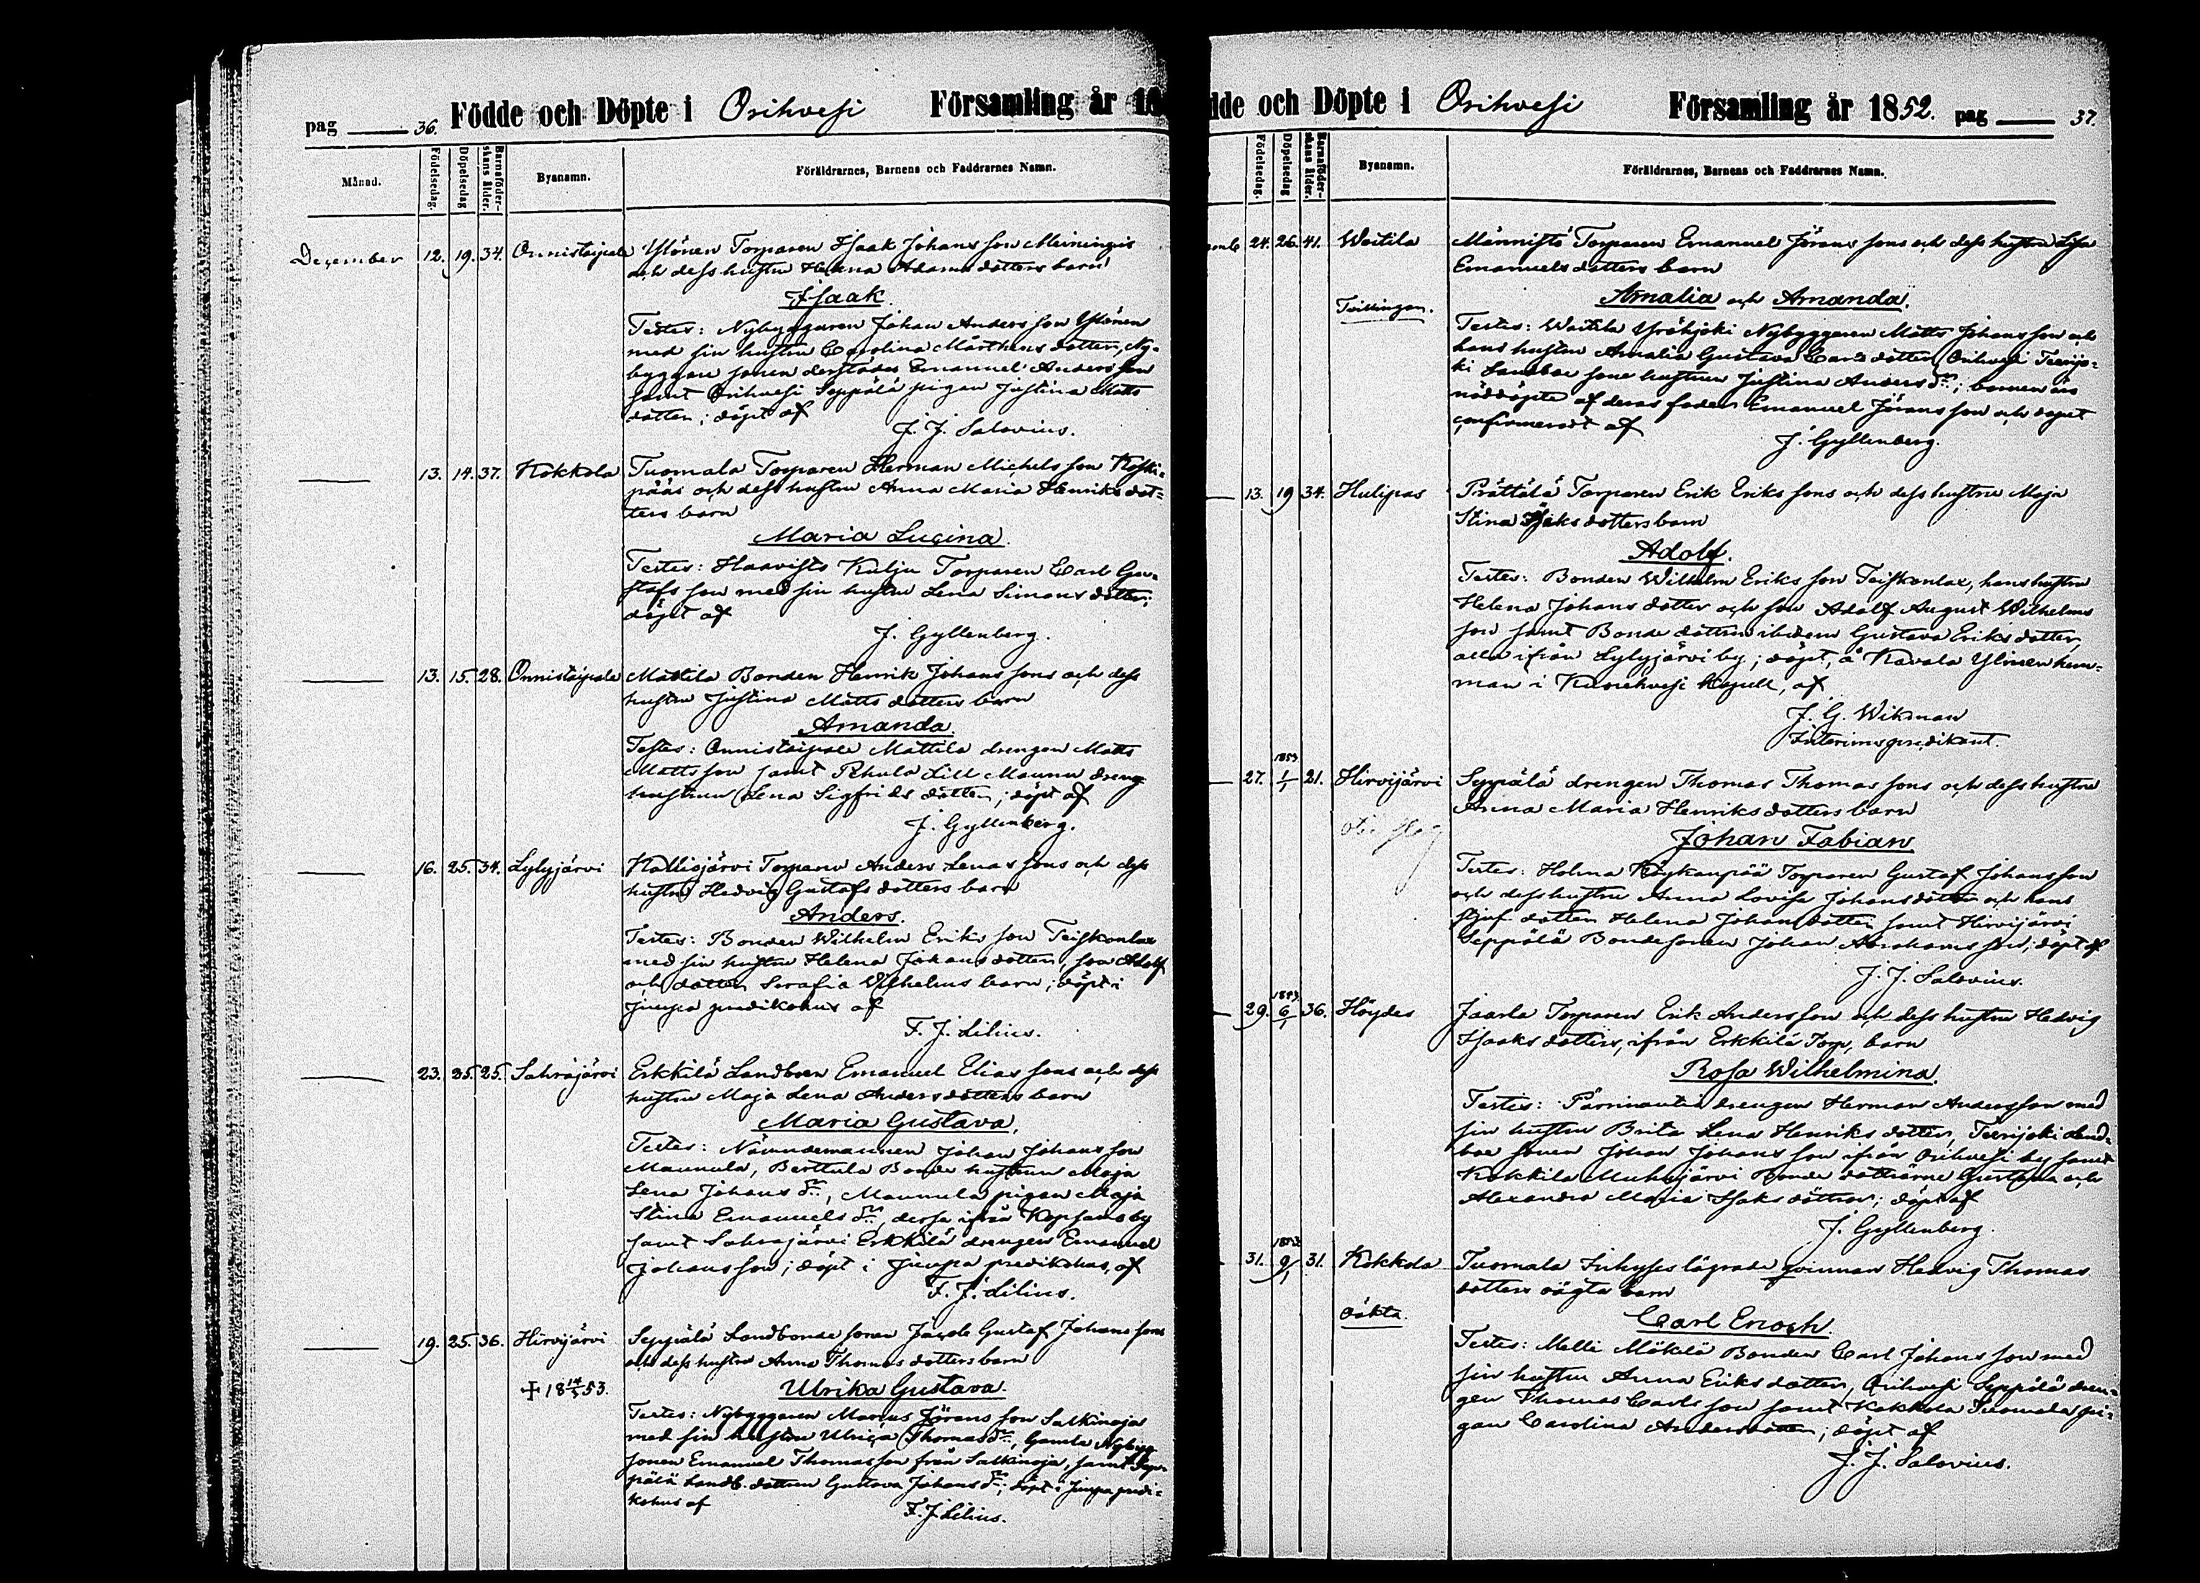 pag 36. Födde och Döpte i Orihvesi Församling år 18
Månad. Födelsedag. Döpelsedag Barnaföderskans ålder. Bysnamn. Föräldrarnes, Barnens och Faddrarnes Namn.
December 12. 19. 34. Onnistaipale Ylönen Torparen Isaak Johans son Meiningis
och dess hustru Helena Adams dotters barn
Isaak.
Testes: Nybyggaren Johan Anders son Ylönen
med sin hustru Carolina Mårthens dotter, Ny-
byggare sonen derstädes Emanuel Anders son
samt Orihvesi Seppälä pigan Justina Matts
dotter; döpt af
J. J. Salovius.
13. 14. 37. Kokkola Tuomala Torparen Herman Michels son Koski-
pääs och dess hustru Anna Maria Henriks dot-
ters barn
Maria Lucina.
Testes: Haavisto Kulju Torparen Carl Gu-
stafs son med sin hustru Lena Simons dotter;
döpt af
J. Gyllenberg.
13. 15. 28. Onnistaipale Mattila Bonden Henrik Johans sons och dess
hustru Justina Matts dotters barn
Amanda.
Testes: Onnistaipale Mattila drengen Matts
Matts son samt Pehula Lill Maunu dreng
hustrun Lena Sigfrids dotter; döpt af
J. Gyllenberg.
16. 25. 34. Lylyjärvi Kalliojärvi Torparen Anders Lenas sons och dess
hustru Hedvig Gustafs dotters barn
Anders.
Testes: Bonden Wilhelm Eriks son Teiskonlax
med sin hustru Helena Johans dotter, son Adolf
och dotter Serafia Wilhelms barn; döpt i
Juupa predikohus af
F. J. Lilius.
23. 25. 25. Sahrajärvi Erkkilä Landboen Emanuel Elias sons och dess
hustru Maja Lena Anders dotters barn
Maria Gustava.
Testes: Nämndemannen Johan Johans son
Maunula, Berttula Bonde hustrun Maja
Lena Johans dr., Maunula pigan Maja
Stina Emanuels dr., dessa ifrån Kopsamo by
samt Sahrajärvi Erkkilä drengen Emanuel
Johans son; döpt i Juupa predikohus, af
F. J. Lilius.
19. 25. 36. Hirvijärvi Seppälä Landbonde sonen Gustaf Johans sons
och dess hustru Anna Thomas dotters barn
+ 18 14/5 53. Ulrika Gustava.
Testes: Nybyggaren Marius Jörans son Salkinoja
med sin hustru Ulrica Thomas dr., Gamla Nybygg
sonen Emanuel Thomas son från Salkinoja, samt Sep-
pälä Landb. dottren Gustava Johans dr.; döpt i Juupa predi-
kohus af
F. J. Lilius.
dde och Döpte i Orihvesi Församling år 1852. pag 37.
Födelsedag. Döpelsedag Barnaföderskans ålder. Bysnamn. Föräldrarnes, Barnens och Faddrarnes Namn.
24. 26. 41. Waitila Männistö Torparen Emanuel Jörans sons och dess hustru Lisa
Emanuels dotters barn
Tvillingar. Amalia och Amanda.
Testes: Waitila Yröhjoki Nybyggaren Matts Johans son och
hans hustru Amalia Gustava Carls dotter, Orihvesi Teerijo-
ki Landboe sone hustrun Justina Anders dr.; barnen äro
nöddöpte af deras fader Emanuel Jörans son och dopet
confirmeradt af
J. Gyllenberg.
13. 19 34. Hulipas Prättälä Torparen Erik Eriks sons och dess hustru Maja
Stina Isaks dotters barn
Adolf.
Testes: Bonden Wilhelm Eriks son Teiskonlax, hans hustru
Helena Johans dotter och son Adolf August Wilhelms
son samt Bonde dottren ibidem Gustava Eriks dotter,
alla ifrån Lylyjärvi by; döpt, å Kavala Ylinen hem-
man i Kuorehvesi Kapell, af
J. G. Wikman
Interimspredikant.
27. 1853 1/1 21. Hirvijärvi Seppälä drengen Thomas Thomas sons och dess hustru
Anna Maria Henriks dotters barn
Johan Fabian
Testes: HolmaKöykänpää Torparen Gustaf Johans son
och dess hustru Anna Lovisa Johans dotter och hans
styf dotter Helena Johans dotter samt Hirvijärvi
Seppälä Bondesonen Johan Abrahams son; döpt af
J. J. Salovius.
29. 1853 6/1 36. Höydes Jaarla Torparen Erik Anders son och dess hustru Hedvig
Isaaks dotters, ifrån Erkkilä Torp, barn
Rosa Wilhelmina.
Testes: Pärrinautia drengen Herman Anders son med
sin hustru Brita Lena Henriks dotter, Teerijoki Land-
boe sonen Johan Johans son ifrån Orihvesi by samt
Kokkila Muhojärvi Bonde döttrarne Gustava och
Alexandra Maria Isaks döttrar; döpt af
J. Gyllenberg.
31. 1853 9/1 31. Kokkola Tuomala Inhyses lägrade qvinnan Hedvig Thomas
dotters oägta barn
oäkta. Carl Enoch.
Testes: Melli Mäkelä Bonden Carl Johans son med
sin hustru Anna Eriks dotter, Orihvesi Seppälä dren-
gen Thomas Carls son samt Kokkola Tuomala pi-
gan Carolina Anders dotter; döpt af
J. J. Salovius.